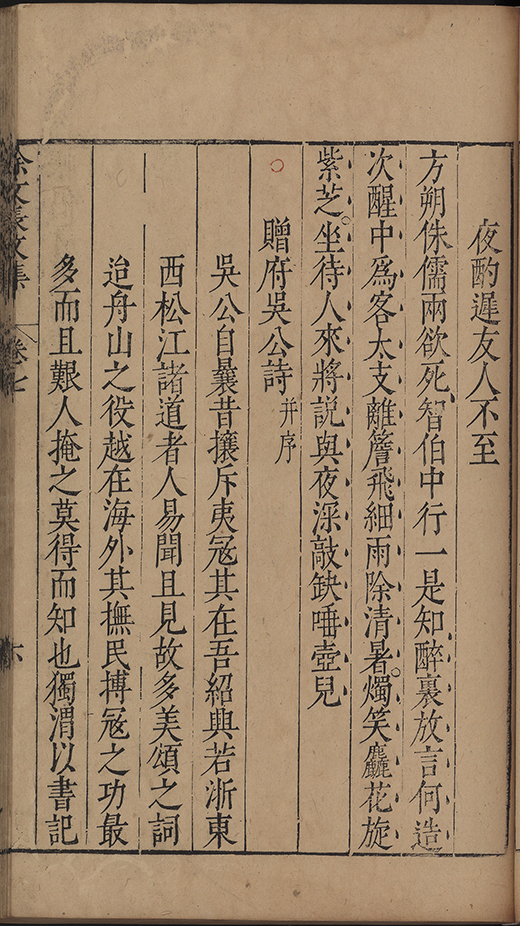 夜酌遲友人不至
方朔侏儒兩欲死智伯中行一是知醉裏放言何造
次醒中爲客太支離簷飛細雨除清暑燭笑麤花旋
紫芝坐待人來將説與夜深敲缺唾壺兒
贈府吳公詩并序
吳公自曩昔攘斥夷冦其在吾紹興若浙東
西松江諸道者人易聞且見故多美頌之詞
迨舟山之役越在海外其撫民搏冦之功最
多而且艱人掩之莫得而知也獨渭以書記
徐文長文集 卷七 六